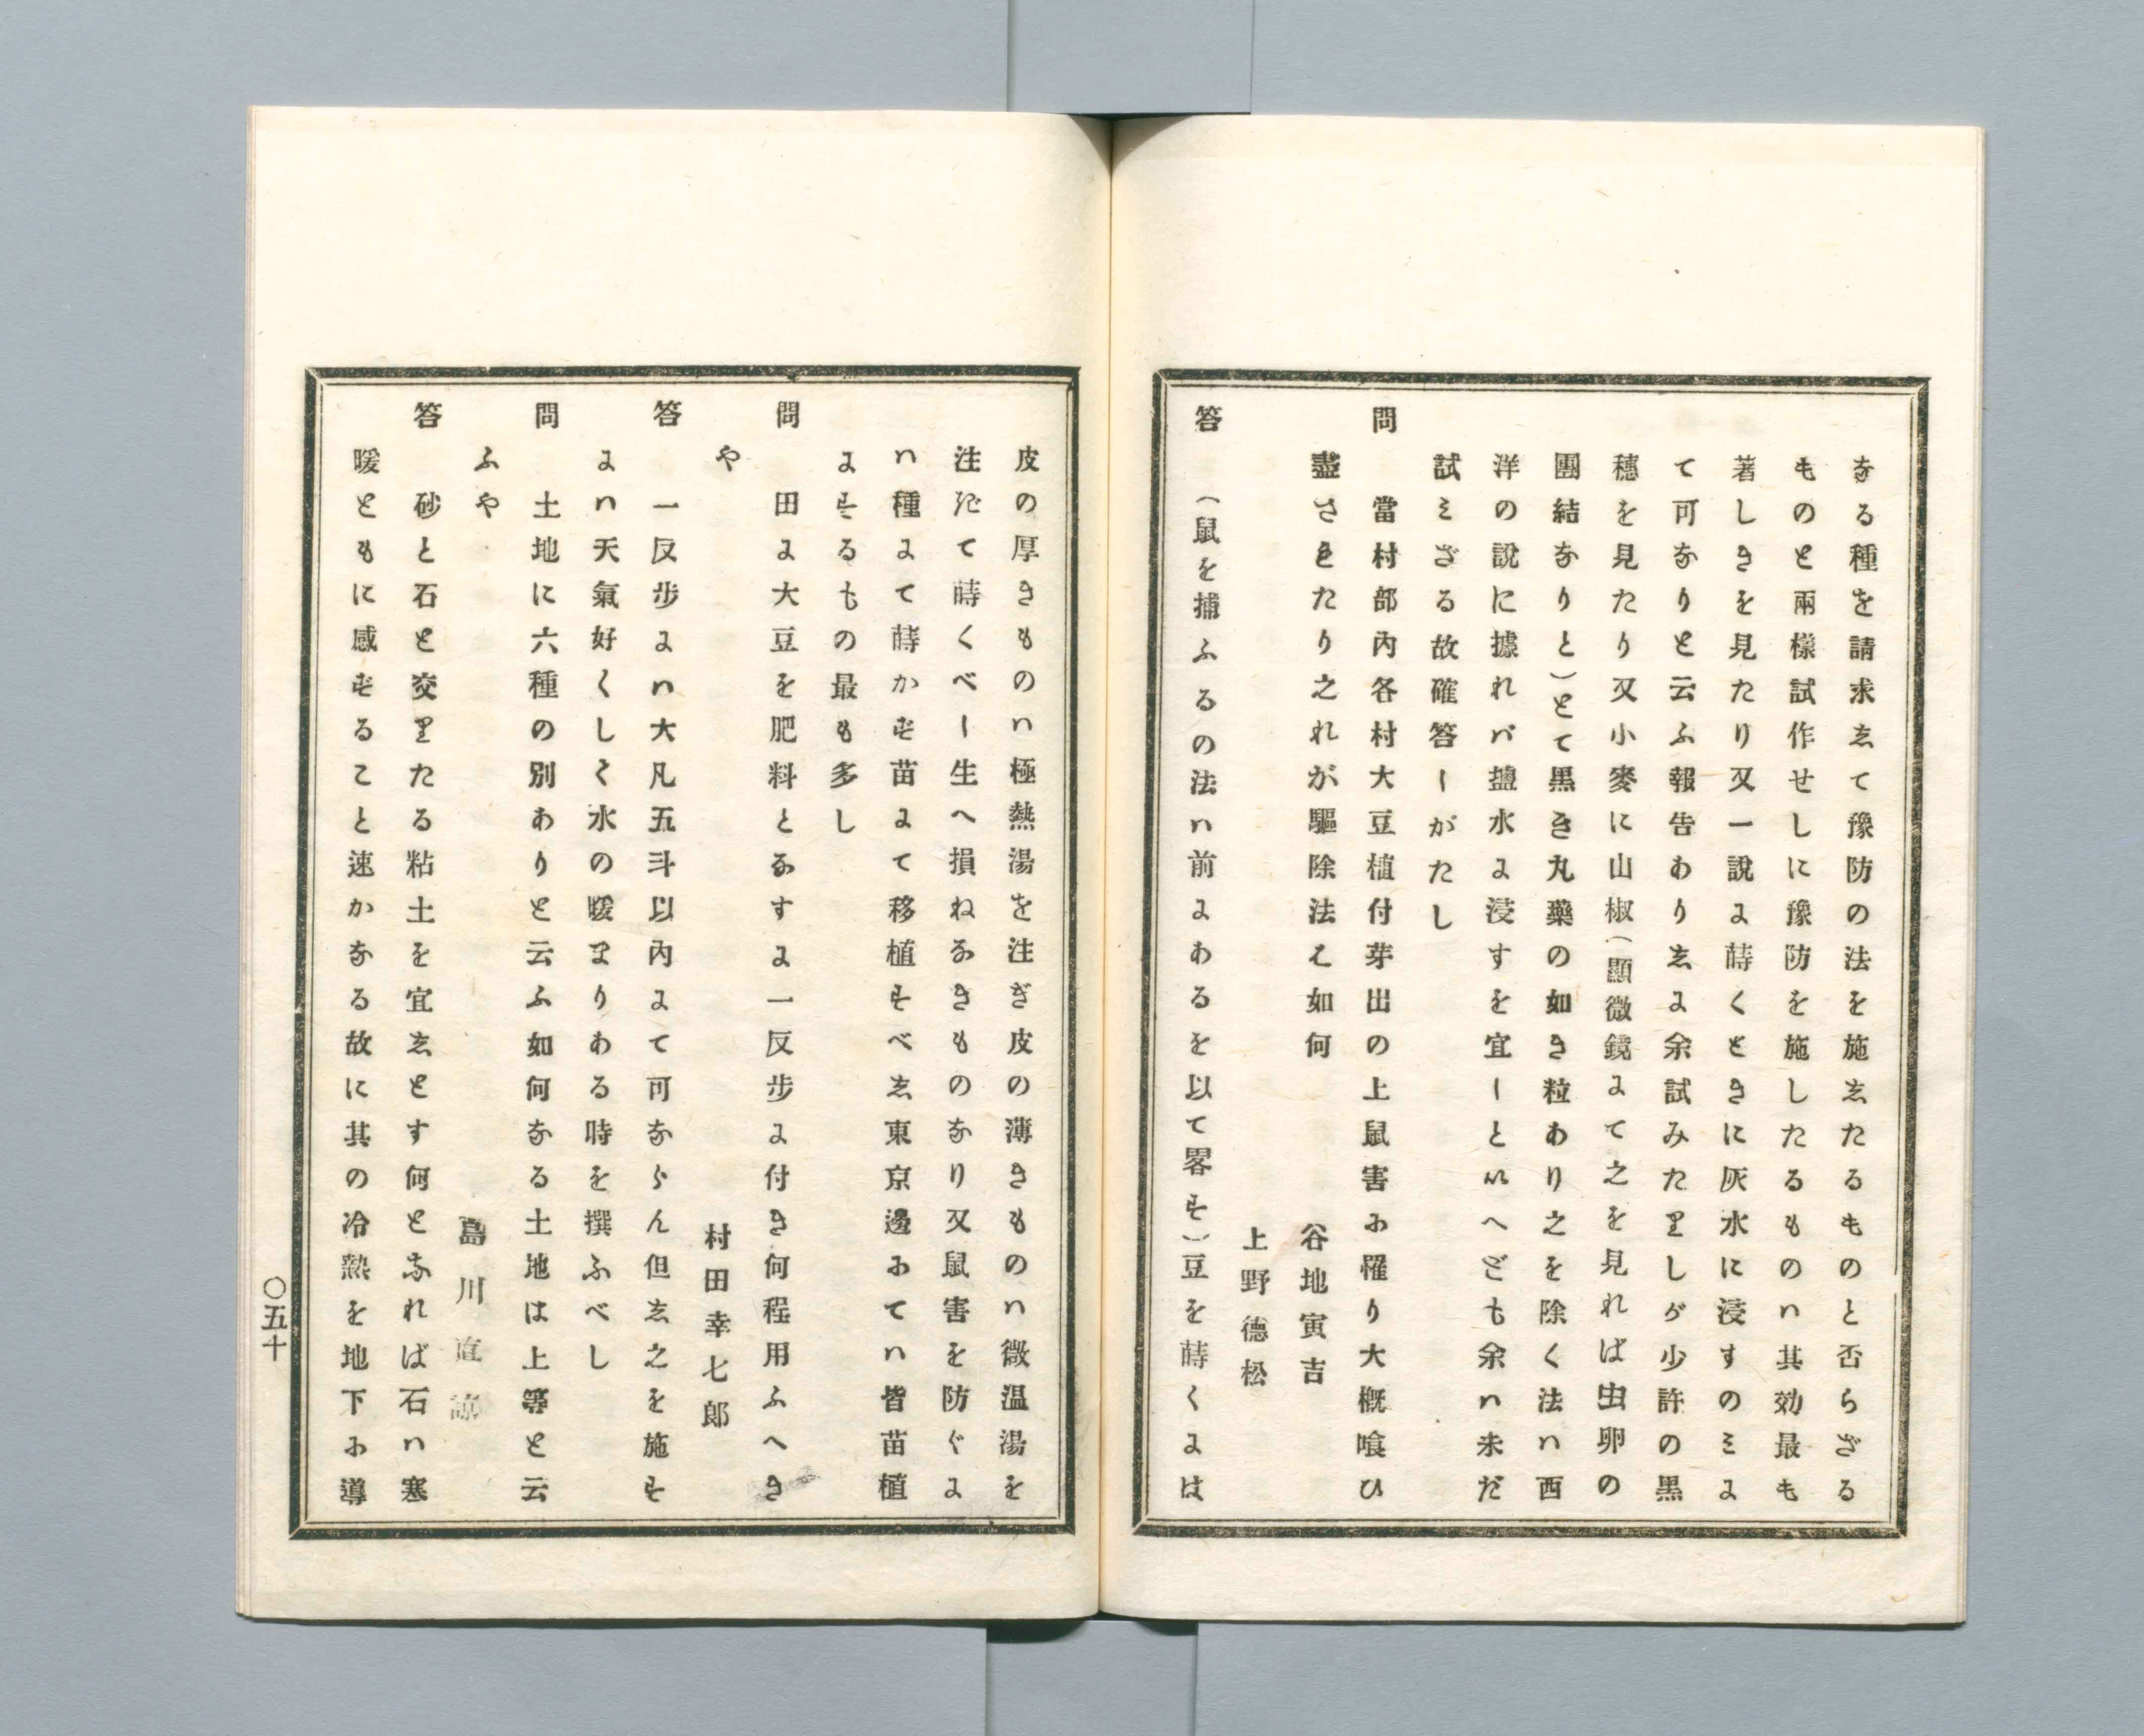 なる種を請求して豫防の法を施したるものと否らざる
ものと兩樣試作せしに豫防を施したるものハ其効最も
著しきを見たり又一說に蒔くときに灰水に浸すのミに
て可なりと云ふ報告ありしに余試みたりしが少許の黒
穗を見たり又小麥に山椒(顯微鏡にて之を見れば虫卵の
團結なりと)とて黒き丸藥の如き粒あり之を除く法ハ西
洋の說に據れバ鹽水に浸すを宜しといへども余ハ未だ
試ミざる故確答しがたし
問 當村部內各村大豆植付芽出の上鼠害に罹り大概喰ひ
盡されたり之れが驅除法は如何
谷地寅吉
上野德松
答 (鼠を捕ふるの法ハ前にあるを以て畧す)豆を蒔くには
皮の厚きものハ極熱湯を注ぎ皮の薄きものハ微温湯を
注ぎて蒔くべし生へ損ねなきものなり又鼠害を防ぐに
ハ種にて蒔かず苗にて移植すべし東京邊にてハ皆苗植
にするもの最も多し
問 田に大豆を肥料となすに一反步に付き何程用ふへき
や
村田幸七郎
答 一反步にハ大凡五斗以內にて可ならん但し之を施す
にハ天氣好くしく水の暖まりある時を撰ふべし
問 土地に六種の別ありと云ふ如何なる土地は上等と云
ふや
島川直諒
答 砂と石と交りたる粘土を宜しとす何となれば石ハ寒
暖ともに感ずること速かなる故に其の冷熱を地下に導
〇五十